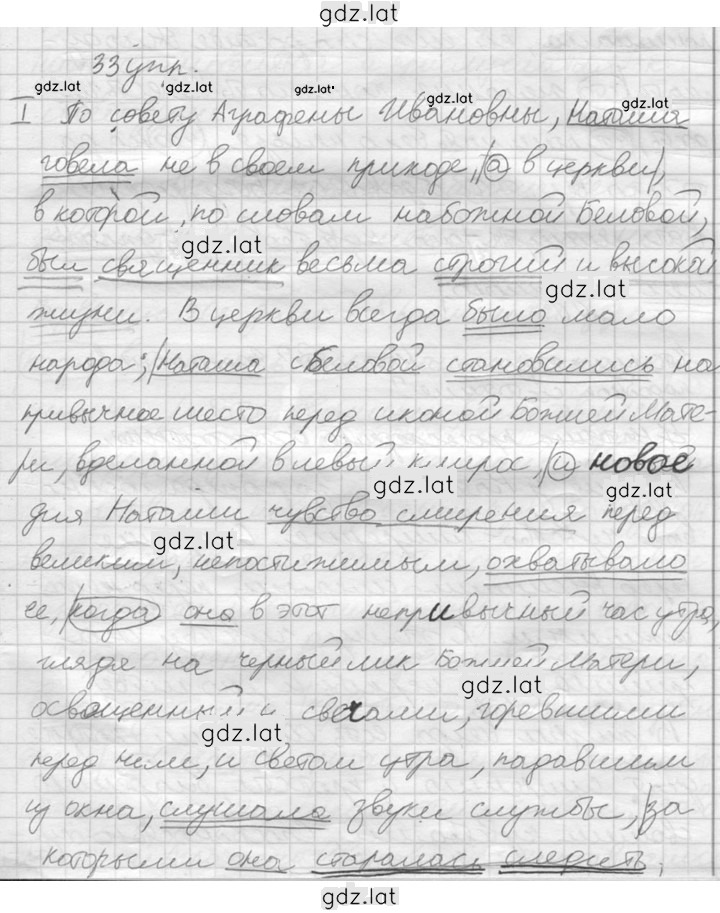 gdz.lat
33 упр.
gdz.lat gdz.lat gdz.lat gdz.lat gdz.lat
I По совету Аграфены Ивановны, Наташа
говела не в своем приходе, а в церкви,
в которой, по словам набожной Беловой,
gdz.lat
был священник весьма строгий и высокой
gdz.lat
жизни. В церкви всегда было мало
народа; Наташа с Беловой становились на
привычное место перед иконой Божией Мате-
ри, вделанной в левый клирос, и новое
gdz.lat gdz.lat
для Наташи чувство смирения перед
gdz.lat
великим, непостижимым, охватывало
ее, когда она в этот непривычный час утра,
глядя на черный лик Божией Матери,
gdz.lat
освещенный и свечами, горевшими
gdz.lat
перед ним, и светом утра, падавшим
из окна, слушала звуки службы, за
которыми она старалась следить,
gdz.lat